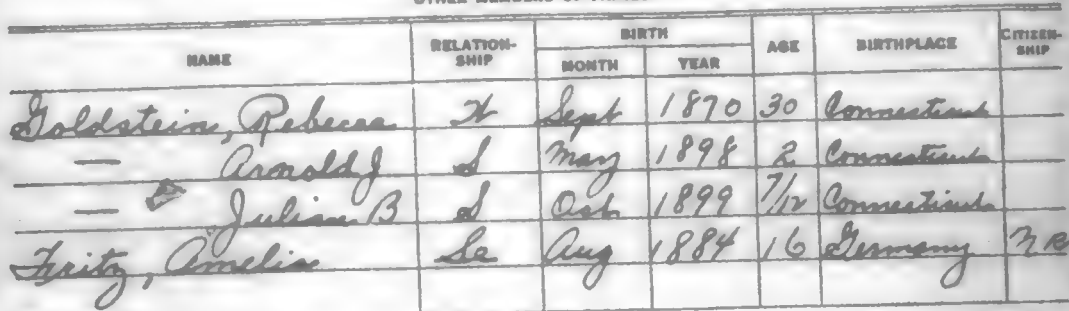 OTHER MEMBERS OF FAMILY
NAME RELATION-SHIP BIRTH MONTH YEAR AGE BIRTHPLACE CITIZEN-SHIP
Goldstein, Rebecca W Sept 1870 30 Connecticut
— Arnold J S May 1898 2 Connecticut
— Julian B S Oct 1899 7/12 Connecticut
Fritz, Amelia Se Aug 1884 16 Germany NR